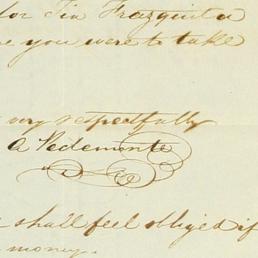 for Tia Frazquita
you were to take
very respectfully
A Pedemonte
shall feel obliged if
money.